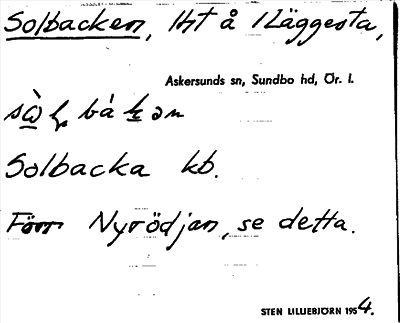 Solbacken, lht å 1 Läggesta,
Askersunds sn, Sundbo hd, Ör. l.
Solbacka kb.
Förr Nyrödjan, se detta.
STEN LILLIEBJÖRN 1954.